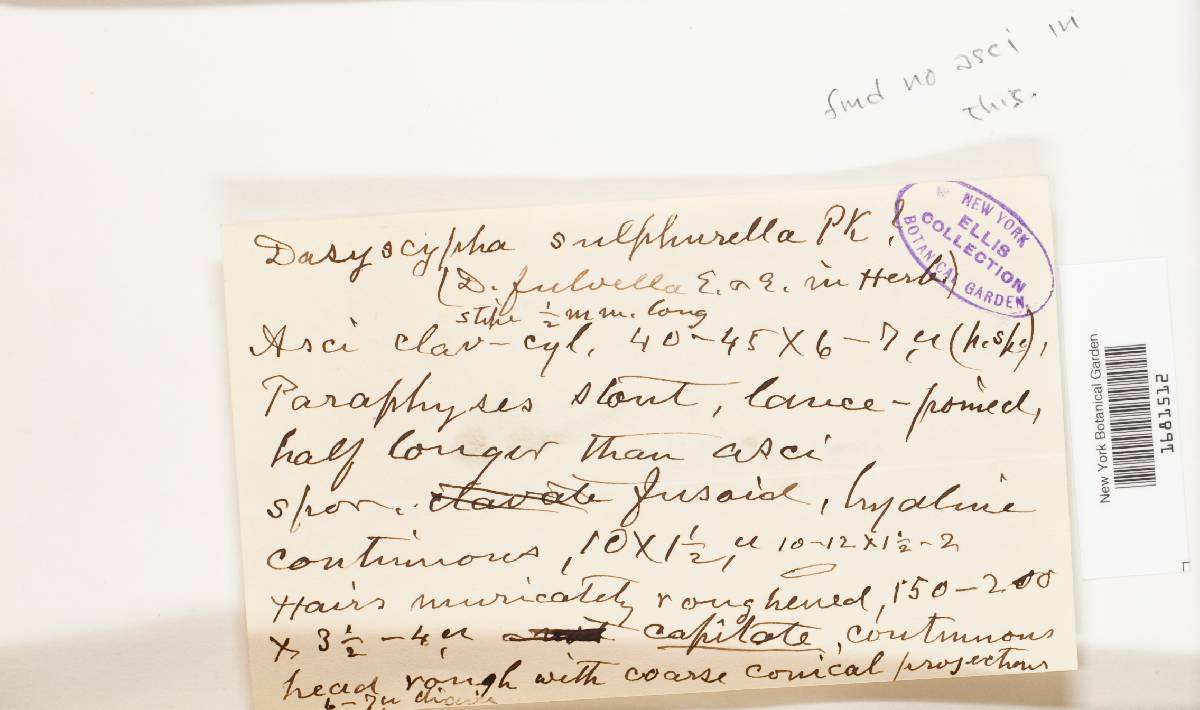 find no asci in
this.
Dasyscypha sulphurella PK?
(D. fulvella E. & E. in Herb.)
stipe ½ m m. long
Asci clav-cyl, 40-45 X 6-7 µ (p.sp.),
Paraphyses stout, lance-poined,
half longer than asci
spor. clavate fusoid, hyaline
continuous, 10 X 1½ µ 10-12 x 1½-2
Hairs muricately roughened, 150-200
X 3½-4 µ capitate, continuous
head rough with coarse conical projections
6-7 µ diam
NEW YORK
ELLIS
COLLECTION
BOTANICAL GARDEN.
New York Botanical Garden
1681512